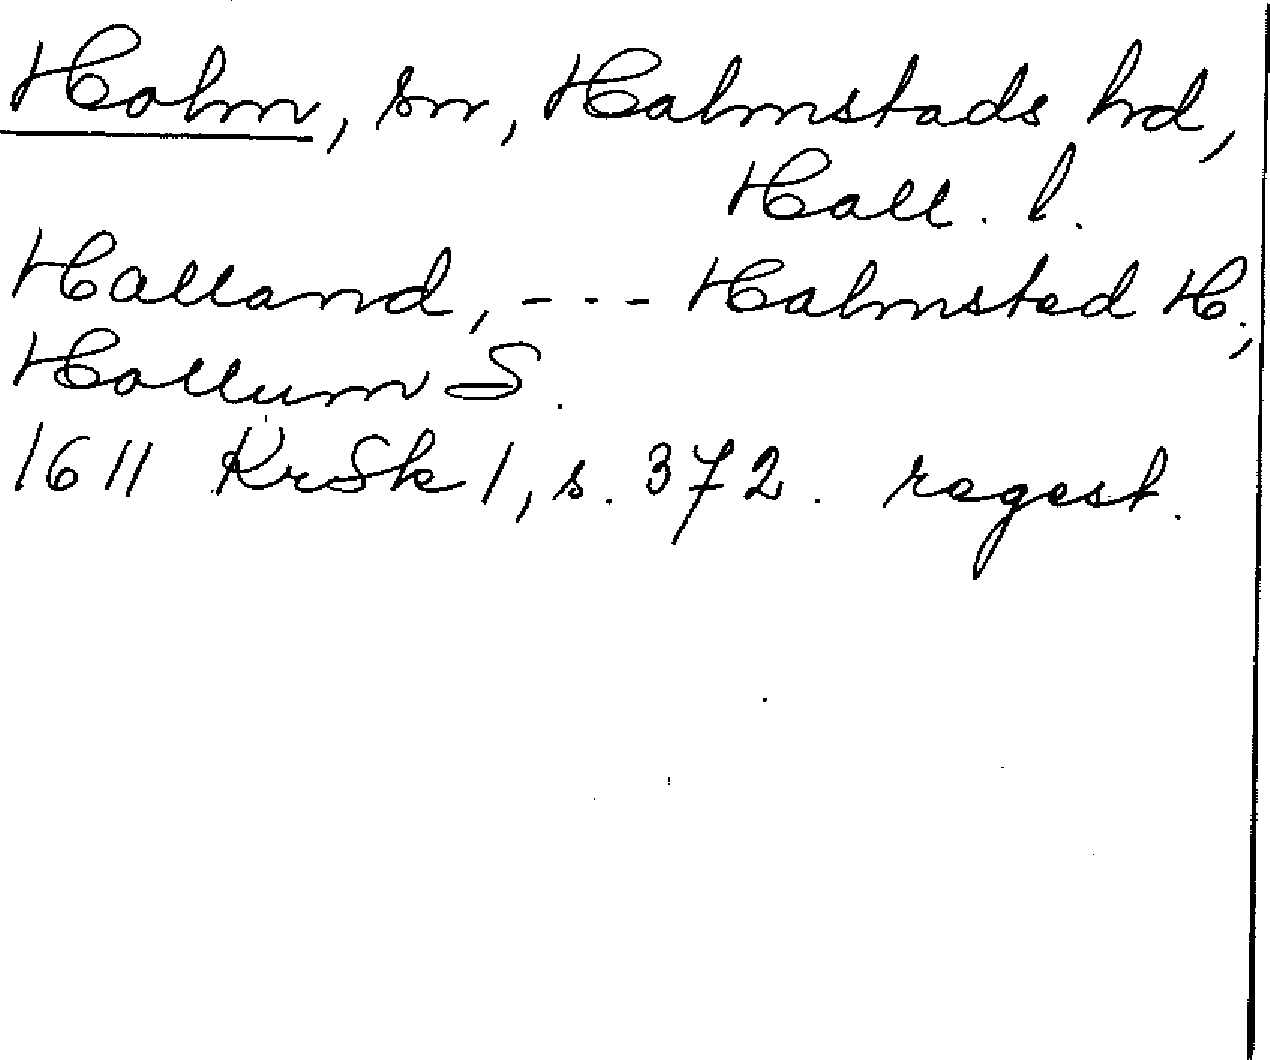 Holm, sn, Halmstads hd,
Hall. l.
Halland, --- Halmsted H.,
Hollum S.
1611 KrSk 1, s. 372. regest.